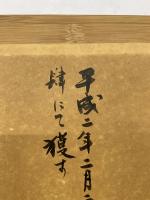 平成二年二月二
肆にて獲す